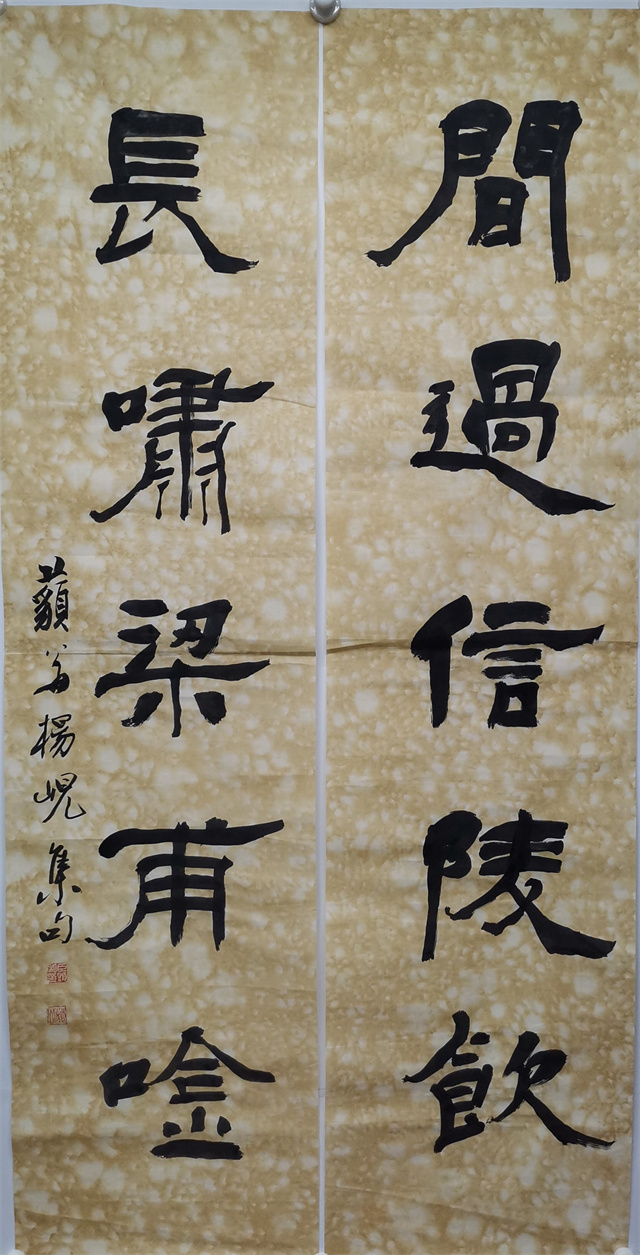 間過信陵飲
長嘯梁甫唫
藐翁楊峴集句